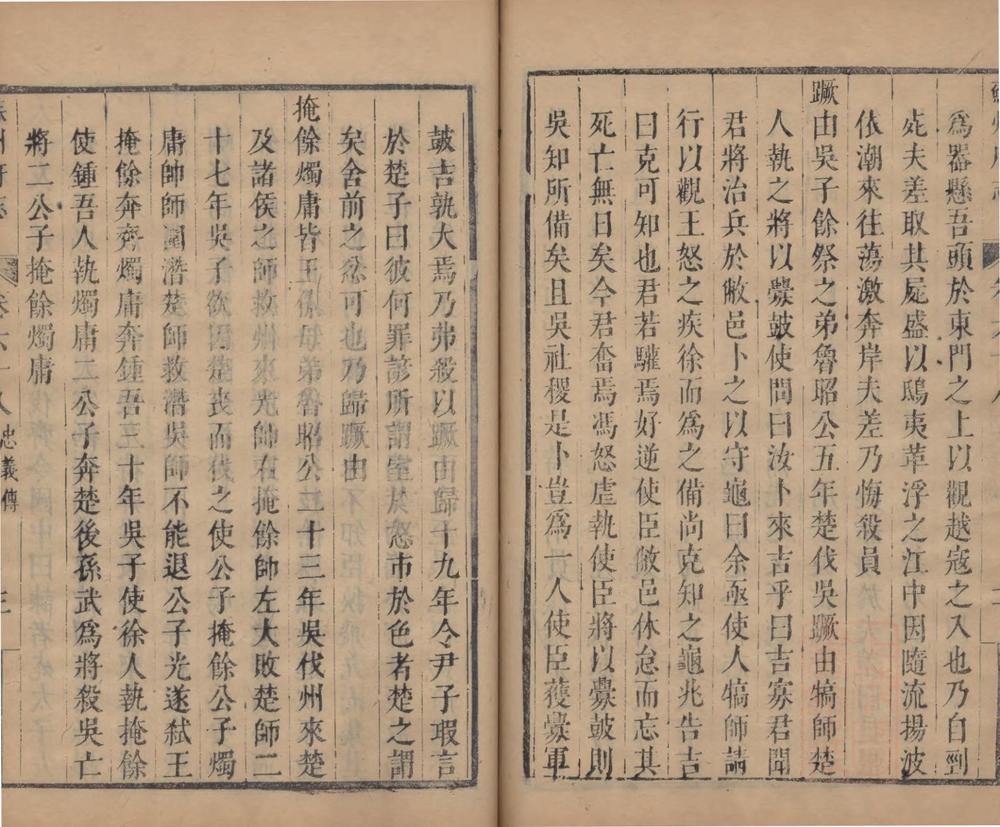 為器懸吾頭於東門之上以觀越寇之入也乃自剄
死夫差取其屍盛以鴟夷革浮之江中因隨流揚波
依潮來往蕩激奔岸夫差乃悔殺員
蹶由吳子餘祭之弟魯昭公五年楚伐吳蹶由犒師楚
人執之將以釁鼓使問曰汝卜來吉乎曰吉寡君聞
君將治兵於敝邑卜之以守龜曰余亟使人犒師請
行以觀王怒之疾徐而為之備尚克知之龜兆告吉
曰克可知也君若驩焉好逆使臣敝邑休怠而忘其
死亡無日矣今君奮焉馮怒虐執使臣將以釁鼓則
吳知所備矣且吳社稷是卜豈為一人使臣獲釁軍
鼓吉孰大焉乃弗殺以蹶由歸十九年令尹子瑕言
於楚子曰彼何罪諺所謂室於怒市於色者楚之謂
矣舍前之忿可也乃歸蹶由
掩餘燭庸皆王僚母弟魯昭公二十三年吳伐州來楚
及諸侯之師救州來光帥右掩餘帥左大敗楚師二
十七年吳子欲因楚喪而伐之使公子掩餘公子燭
庸帥師圍潛楚師救潛吳師不能退公子光遂弒王
掩餘奔徐燭庸奔鍾吾三十年吳子使徐人執掩餘
使鍾吾人執燭庸二公子奔楚後孫武為將殺吳亡
將二公子掩餘燭庸
卷六十八 忠義傳 三